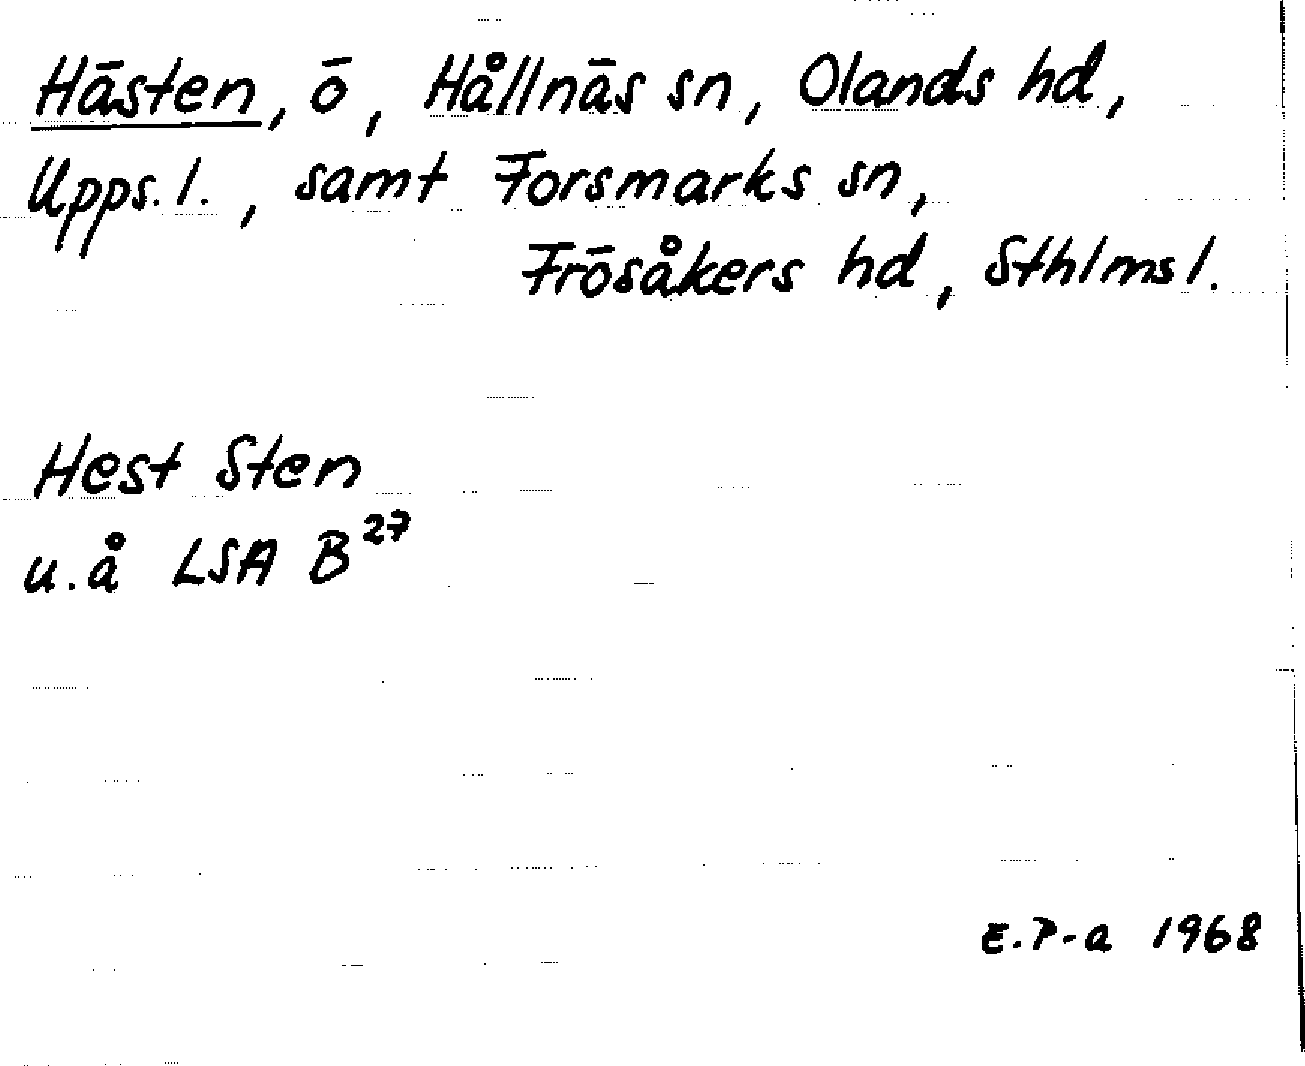 Hästen, ö, Hållnäs sn, Olands hd,
Upps. l., samt Forsmarks sn,
Frösåkers hd, Sthlms l.
Hest Sten
u.å LSA B27
E.P-a 1968